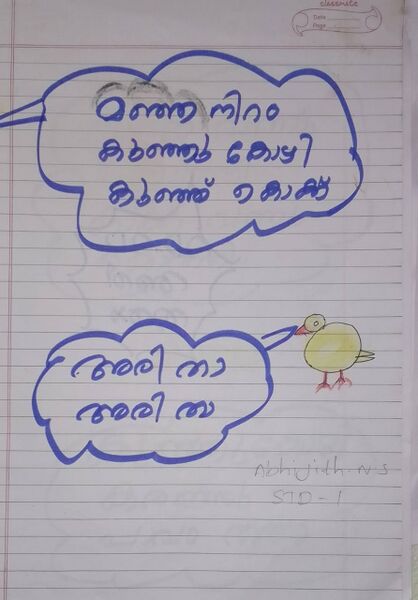 classmate
Date
Page
മഞ്ഞ നിറം
കുഞ്ഞു കോഴി
കുഞ്ഞ് കൊക്ക്
അരി താ
അരി താ
Abhijith. N. S
STD - 1